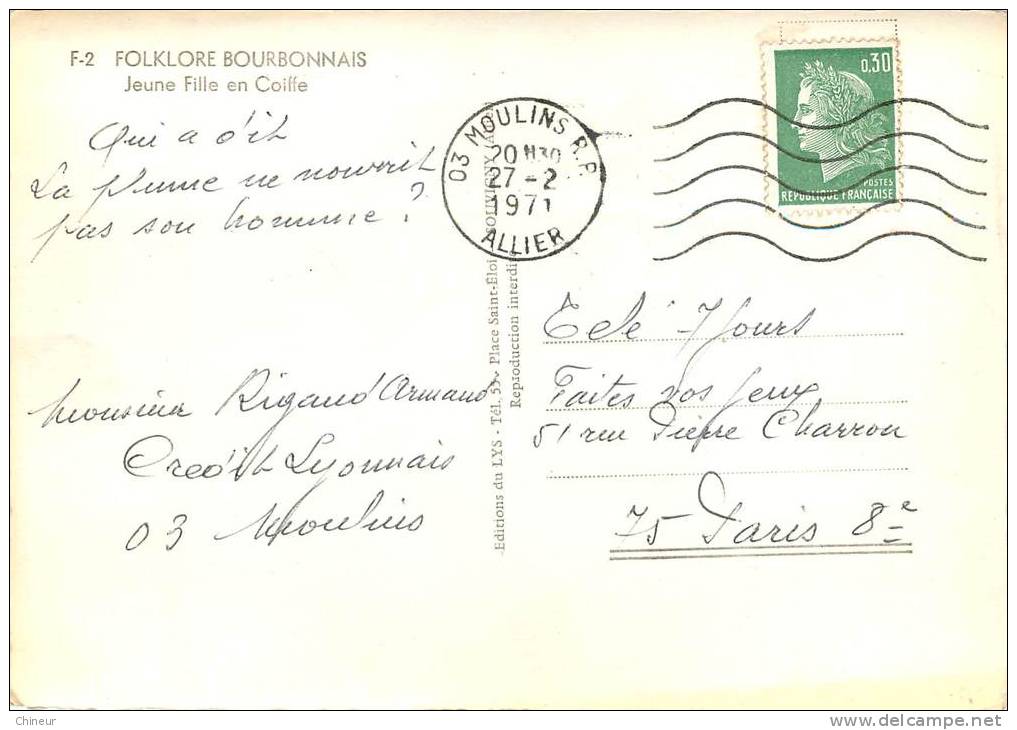 F-2 FOLKLORE BOURBONNAIS
Jeune Fille en Coiffe
Qui a dit
La plume ne nourrit
pas son homme ?
Monsieur Rigaud Armand
Credit Lyonnais
03 Moulins
Editions du LYS - Tél. 55 - Place Saint-Éloi - SOUVIGNY
Reproduction interdite
03 MOULINS R.P.
20 H30
27-2
1971
ALLIER
0,30
POSTES
RÉPUBLIQUE FRANÇAISE
Télé 7 Jours
Faites vos jeux
51 rue Pierre Charron
75 Paris 8e
Chineur
www.delcampe.net